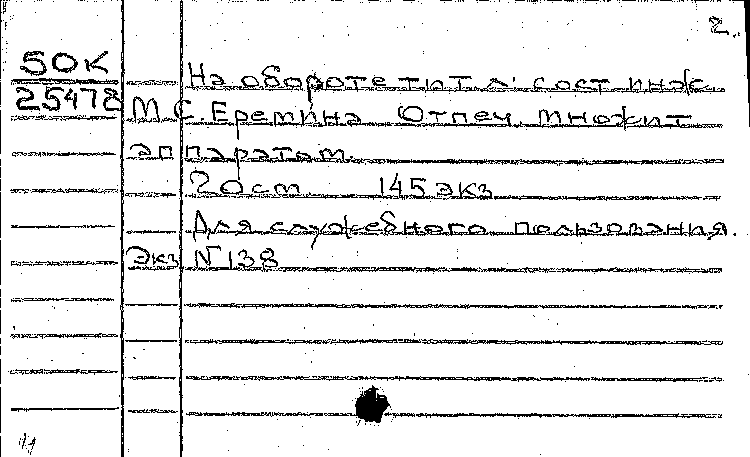 2.
50К
25478
На обороте тит л: сост инж.
М.С. Еремина Отпеч. множит
аппаратом.
20 ст. 145 экз
Для служебного пользования.
Экз N 138